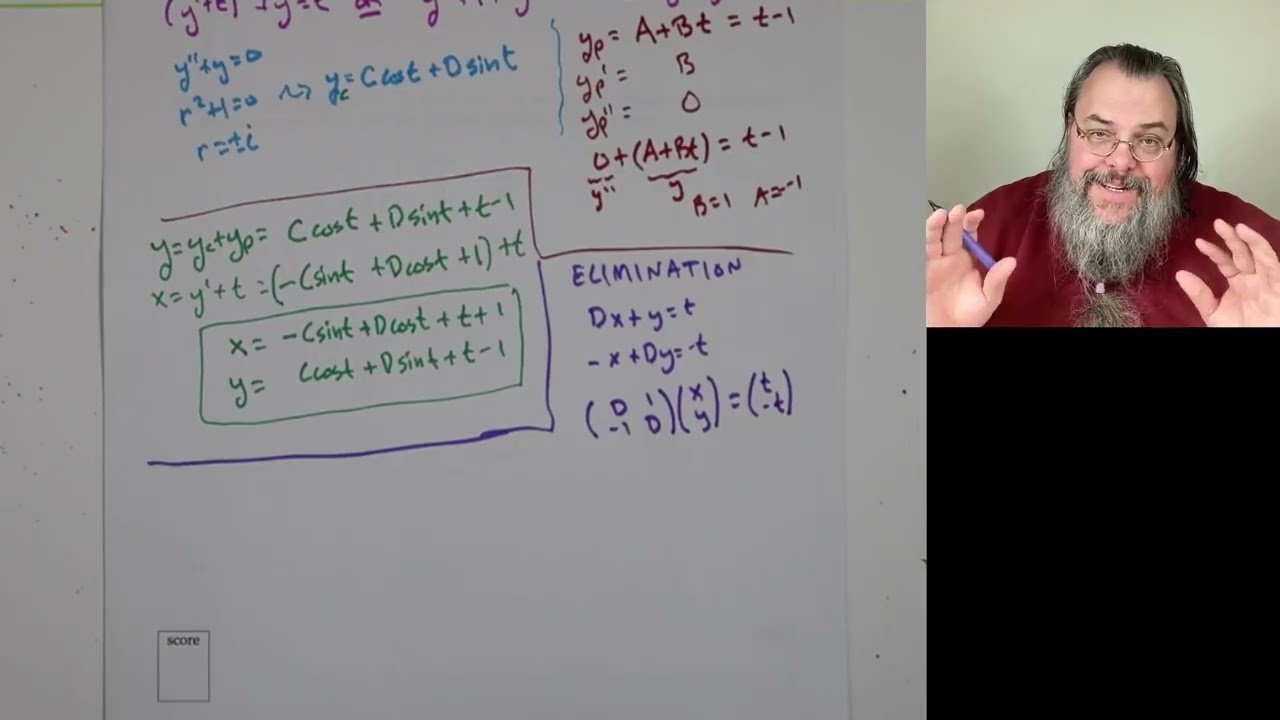 y''+y=0
r²+1=0 ⇝ y_c=Ccost+Dsint
r=±i
y_p= A+Bt = t-1
y_p'= B
y_p''= 0
0+(A+Bt)=t-1
y'' y B=1 A=-1
y=y_c+y_p= Ccost+Dsint+t-1
x=y'+t=(-Csint+Dcost+1)+t
x= -Csint+Dcost+t+1
y= Ccost+Dsint+t-1
ELIMINATION
Dx+y=t
-x+Dy=-t
(D 1
-1 D)(x
y)=(t
-t)
score